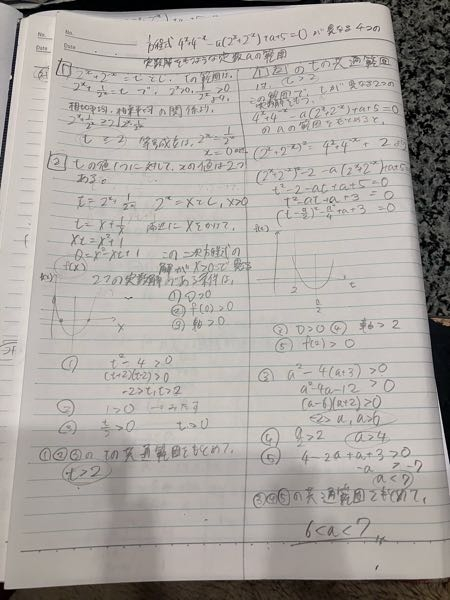 No.
Date
No.
Date
方程式 4^x+4^-x-a(2^x+2^-x)+a+5=0が異なる4つの
実数解をもつような定数aの範囲
1 2^x+2^-x=tとし、tの範囲は、
2^x+1/2^x=tで、2^x>0, 1/2^x>0
より、
相加平均、相乗平均の関係より、
t≧2 等号成立は、2^x=1/2^x
x=0
2 tの値1つに対して、xの値は2つ
ある。
t=2^x+1/2^x 2^x=Xとし、X>0
t=X+1/X 両辺にXをかけて、
Xt=X^2+1
0=X^2-Xt+1 この二次方程式の
f(X) 解がX>0で異なる
2つの実数解である条件は、
① D>0
② f(0)>0
③ 軸>0
f(x)
X
① t^2-4>0
(t+2)(t-2)>0
-2>t, t>2
② 1>0
③ t/2>0 t>0
①②③のtの共通範囲をもとめて、
t>2
1, 2のtの共通範囲
は t>2
この範囲で、tが異なる2つの
実数解をもつ。
4^x+4^-x-a(2^x+2^-x)+a+5=0
のaの範囲をもとめると、
(2^x+2^-x)^2=4^x+4^-x+2より
(2^x+2^-x)^2-2-a(2^x+2^-x)+a+5=0
t^2-2-at+a+5=0
t^2-at+a+3=0
(t-a/2)^2-a^2/4+a+3=0
f(t)
t
a/2
2
③ D>0 ④ 軸>2
⑤ f(2)>0
③ a^2-4(a+3)>0
a^2-4a-12>0
(a-6)(a+2)>0
-2>a, a>6
④ a/2>2 a>4
⑤ 4-2a+a+3>0
-a>-7
a<7
③④⑤の共通範囲をもとめて、
6<a<7